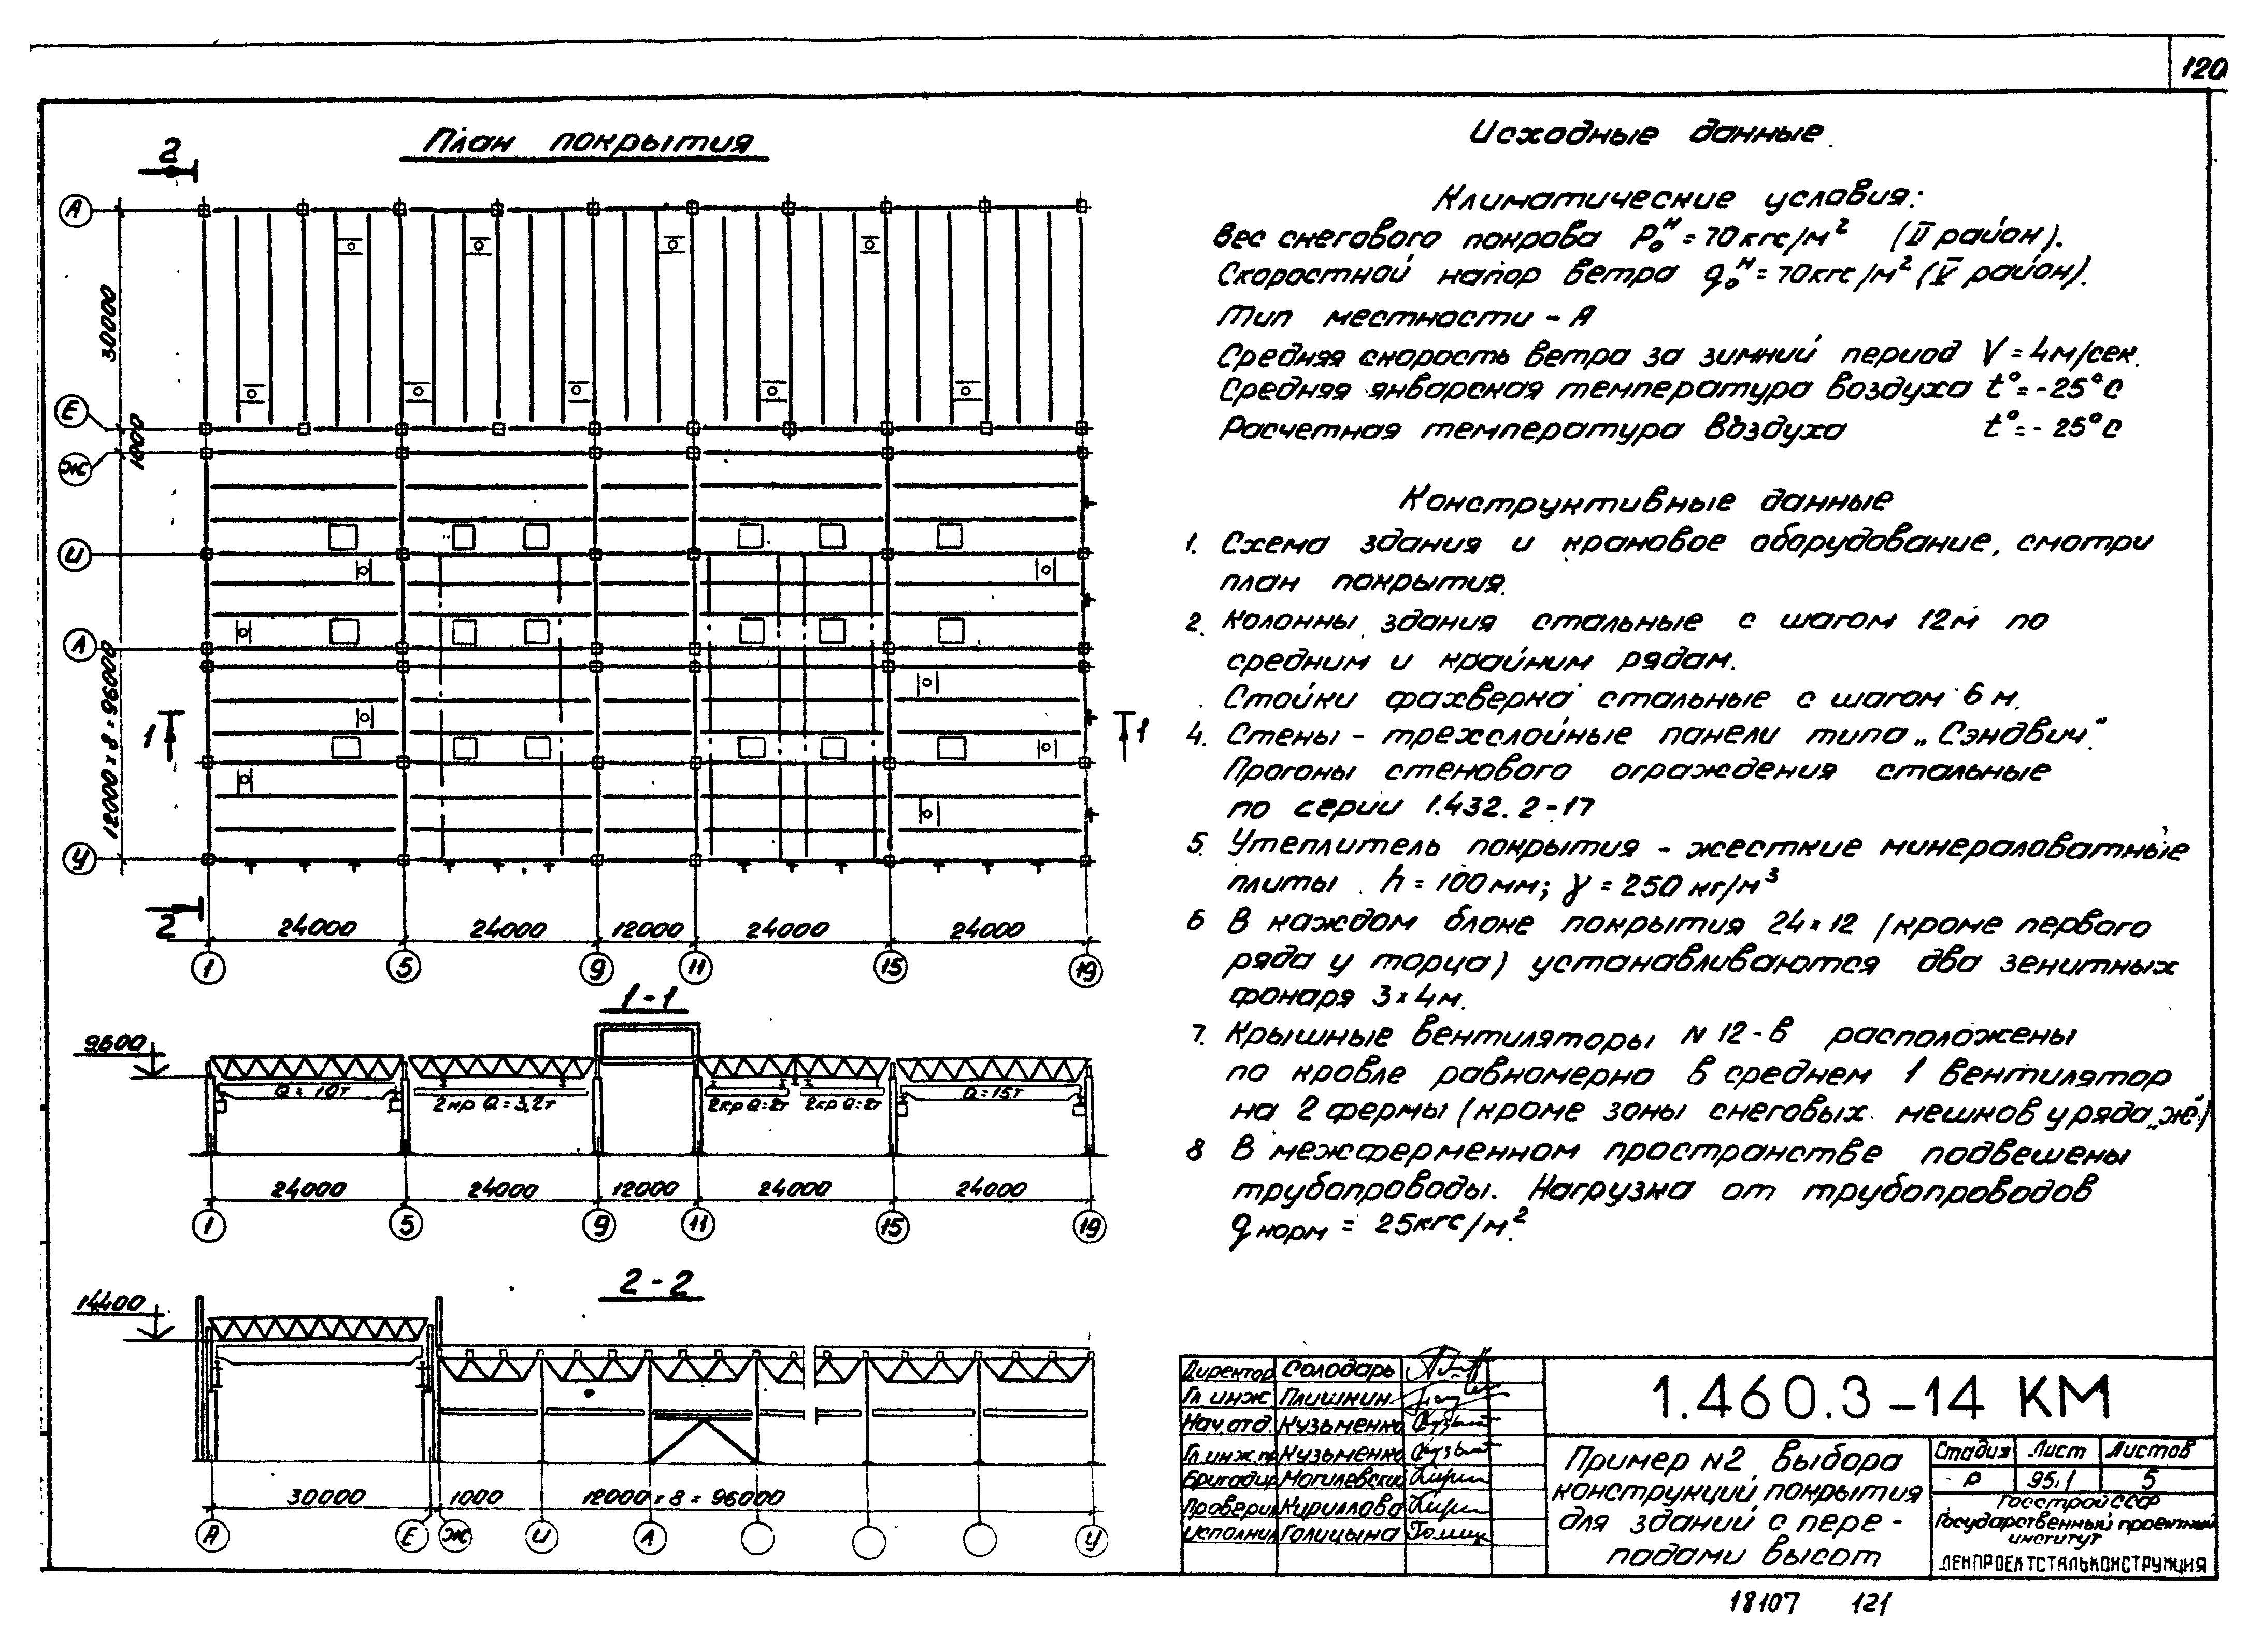 120
План покрытия
2
А
30000
Е
1000
Ж
И
Л
12000 х 8 = 96000
1
1
У
2
24000
24000
12000
24000
24000
1
5
9
11
15
19
1-1
9.600
Q = 10т
2 кр Q = 3,2т
2 кр Q = 2т
2 кр Q = 2т
Q = 15т
24000
24000
12000
24000
24000
1
5
9
11
15
19
2-2
14.400
30000
1000
12000 х 8 = 96000
А
Е
Ж
И
Л
У
Исходные данные.
Климатические условия:
Вес снегового покрова P₀ᴴ = 70 кгс/м² (II район).
Скоростной напор ветра q₀ᴴ = 70 кгс/м² (V район).
Тип местности - А
Средняя скорость ветра за зимний период V = 4м/сек.
Средняя январская температура воздуха t° = -25°С
Расчетная температура воздуха t° = -25°С
Конструктивные данные
1. Схема здания и крановое оборудование, смотри
план покрытия.
2. Колонны здания стальные с шагом 12м по
средним и крайним рядам.
Стойки фахверка стальные с шагом 6 м.
4. Стены - трехслойные панели типа „Сэндвич".
Прогоны стенового ограждения стальные
по серии 1.432.2-17
5. Утеплитель покрытия - жесткие минераловатные
плиты h = 100 мм; γ = 250 кг/м³
6 В каждом блоке покрытия 24х12 (кроме первого
ряда у торца) устанавливаются два зенитных
фонаря 3х4м.
7. Крышные вентиляторы N 12-в расположены
по кровле равномерно в среднем 1 вентилятор
на 2 фермы (кроме зоны снеговых мешков у ряда „Ж")
8 В межферменном пространстве подвешены
трубопроводы. Нагрузка от трубопроводов
qнорм = 25кгс/м².
Директор Солодарь
Гл. инж Плишкин
Нач. отд. Кузьменко
Гл. инж. пр Кузьменко
Бригадир Могилевский
Проверил Кириллова
Исполнил Голицына
1.460.3-14 КМ
Пример N2 выбора
конструкций покрытия
для зданий с пере-
падами высот
Стадия Лист Листов
Р 95.1 5
Госстрой СССР
Государственный проектный
институт
ЛЕНПРОЕКТСТАЛЬКОНСТРУКЦИЯ
18107 121